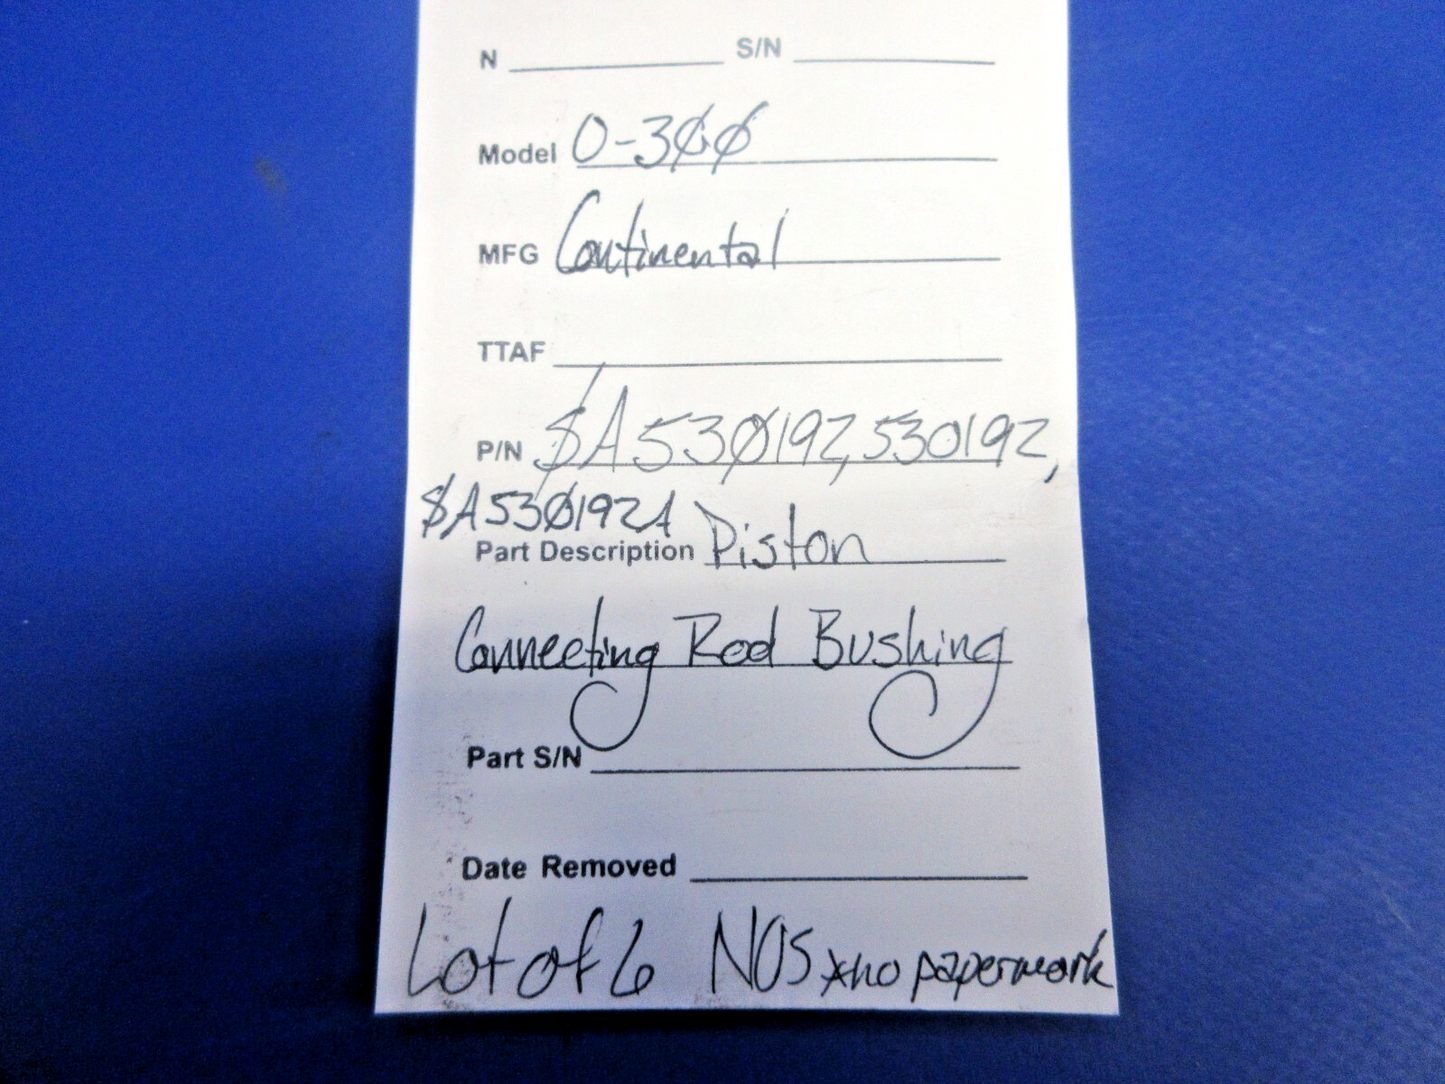 N ____ S/N ____
Model O-300
MFG Continental
TTAF ____
P/N SA530192, 530192,
SA530192A
Part Description Piston
Connecting Rod Bushing
Part S/N ____
Date Removed ____
Lot of 6 NOS *no paperwork